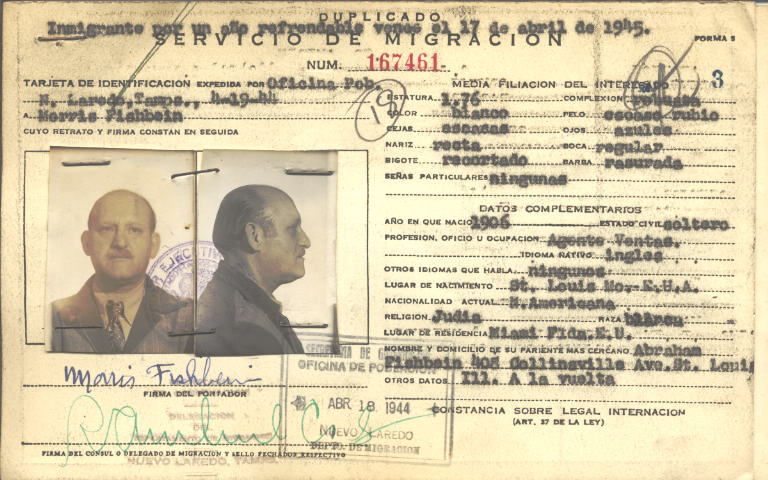 DUPLICADO
Inmigrante por un año refrendable vence el 17 de abril de 1945.
SERVICIO DE MIGRACION
FORMA 5
NUM. 167461
3
TARJETA DE IDENTIFICACIÓN EXPEDIDA POR Oficina Pob.
N. Laredo, Tamps., 4-19-44
A Morris Fishbein
CUYO RETRATO Y FIRMA CONSTAN EN SEGUIDA
18
MEDIA FILIACION DEL INTERESADO
ESTATURA 1.76 COMPLEXION robusta
COLOR blanco PELO escaso rubio
CEJAS escasas OJOS azules
NARIZ recta BOCA regular
BIGOTE recortado BARBA rasurada
SEÑAS PARTICULARES ningunas
DATOS COMPLEMENTARIOS
AÑO EN QUE NACIO 1906 ESTADO CIVIL soltero
PROFESION, OFICIO U OCUPACION Agente Ventas.
IDIOMA NATIVO ingles
OTROS IDIOMAS QUE HABLA ningunos
LUGAR DE NACIMIENTO St. Louis Mo. E.U.A.
NACIONALIDAD ACTUAL N. Americana
RELIGION Judia RAZA blanca
LUGAR DE RESIDENCIA Miami Flda. E.U.
NOMBRE Y DOMICILIO DE SU PARIENTE MAS CERCANO Abraham
Fishbein 805 Collinsville Ave. St. Louis
OTROS DATOS Ill. A la vuelta
CONSTANCIA SOBRE LEGAL INTERNACION
(ART. 37 DE LA LEY)
EJECUTIV
Morris Fishbein
FIRMA DEL PORTADOR
OFICINA DE POBLACION
ABR 18 1944
NUEVO LAREDO
DEPTO. DE MIGRACION
DELEGACION
DEL
NUEVO LAREDO, TAMPS.
FIRMA DEL CONSUL O DELEGADO DE MIGRACION Y SELLO FECHADOR RESPECTIVO